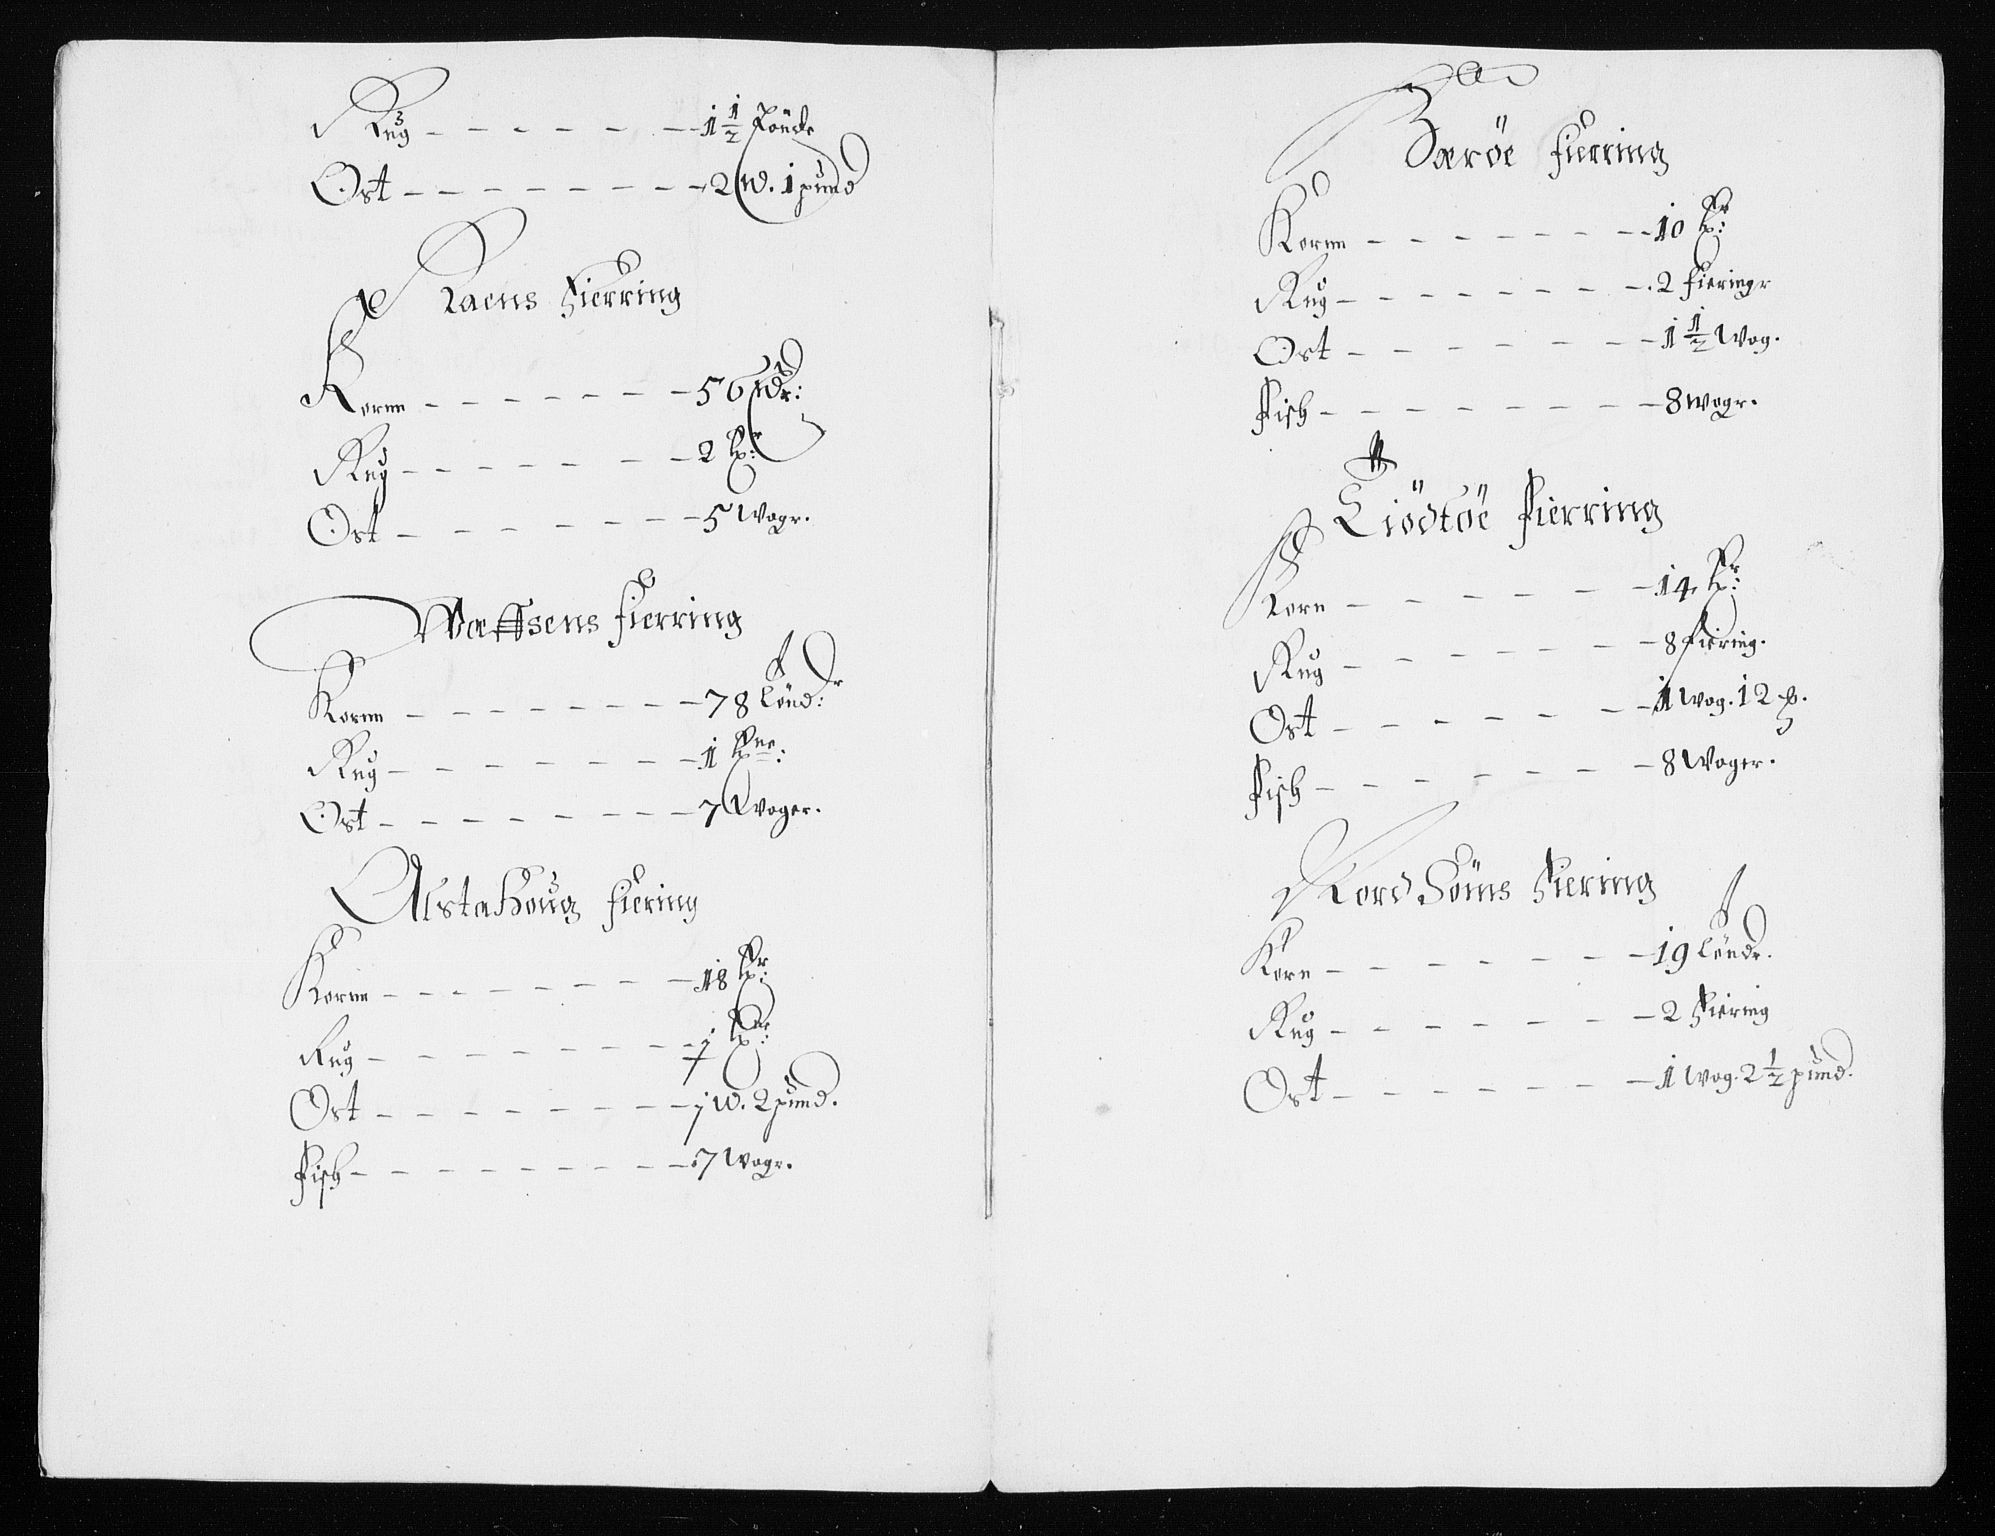 Rug - - - - - - - 1 1/2 tønde
Ost - - - - - - - - 2 W. 1 pund
Ranens Fierring
Kornn - - - - - - - 56 tdr:
Rug - - - - - - - 2 tr:
Ost - - - - - - - 5 Wogr.
Weffsens fierring
Kornn - - - - - - - - 78 tönd:r
Rug - - - - - - - - 1 tne:
Ost - - - - - - - - - 7 Woger.
Alstahoug fiering
Kornn - - - - - - - - 18 tr:
Rug - - - - - - - - - 1
Ost - - - - - - - - - 1 W. 2 pund.
Fisch - - - - - - - - - 7 Wogr.
Herøe fierring
Kornn - - - - - - - - 10 tr:
Rug - - - - - - - - 2 fieringr
Ost - - - - - - - - 1 1/2 Wog.
Fisch - - - - - - - - - 8 Wogr.
Tiödtöe Fierring
Korn - - - - - - - 14 tr:
Rug - - - - - - - 8 fiering.
Ost - - - - - - - - 1 Wog. 12 p.
Fisch - - - - - - - - 8 Woger.
Nord Höms Fiering
Korn - - - - - - - - 19 töndr.
Rug - - - - - - - - 2 Fiering
Ost - - - - - - - - 1 Wog. 2 1/2 pund.